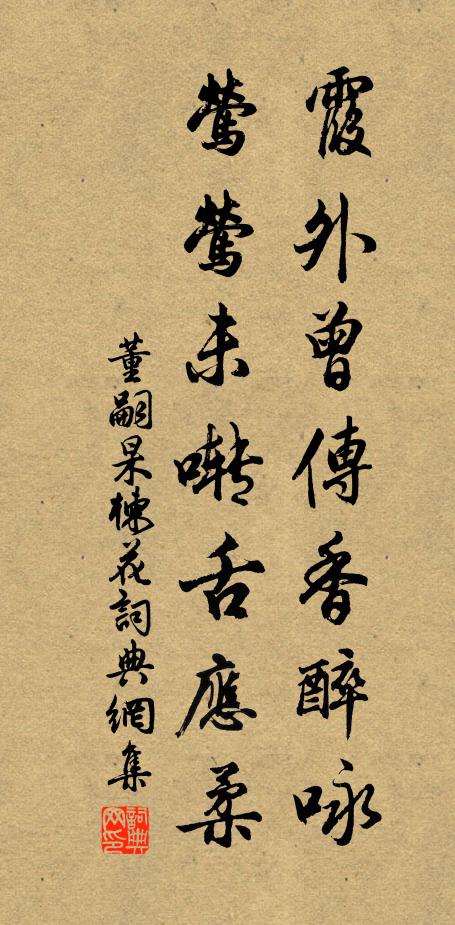 霞外曾傳香醉咏
鶯鶯未囀舌應柔
董嗣杲楝花詞典網集
詞典網印